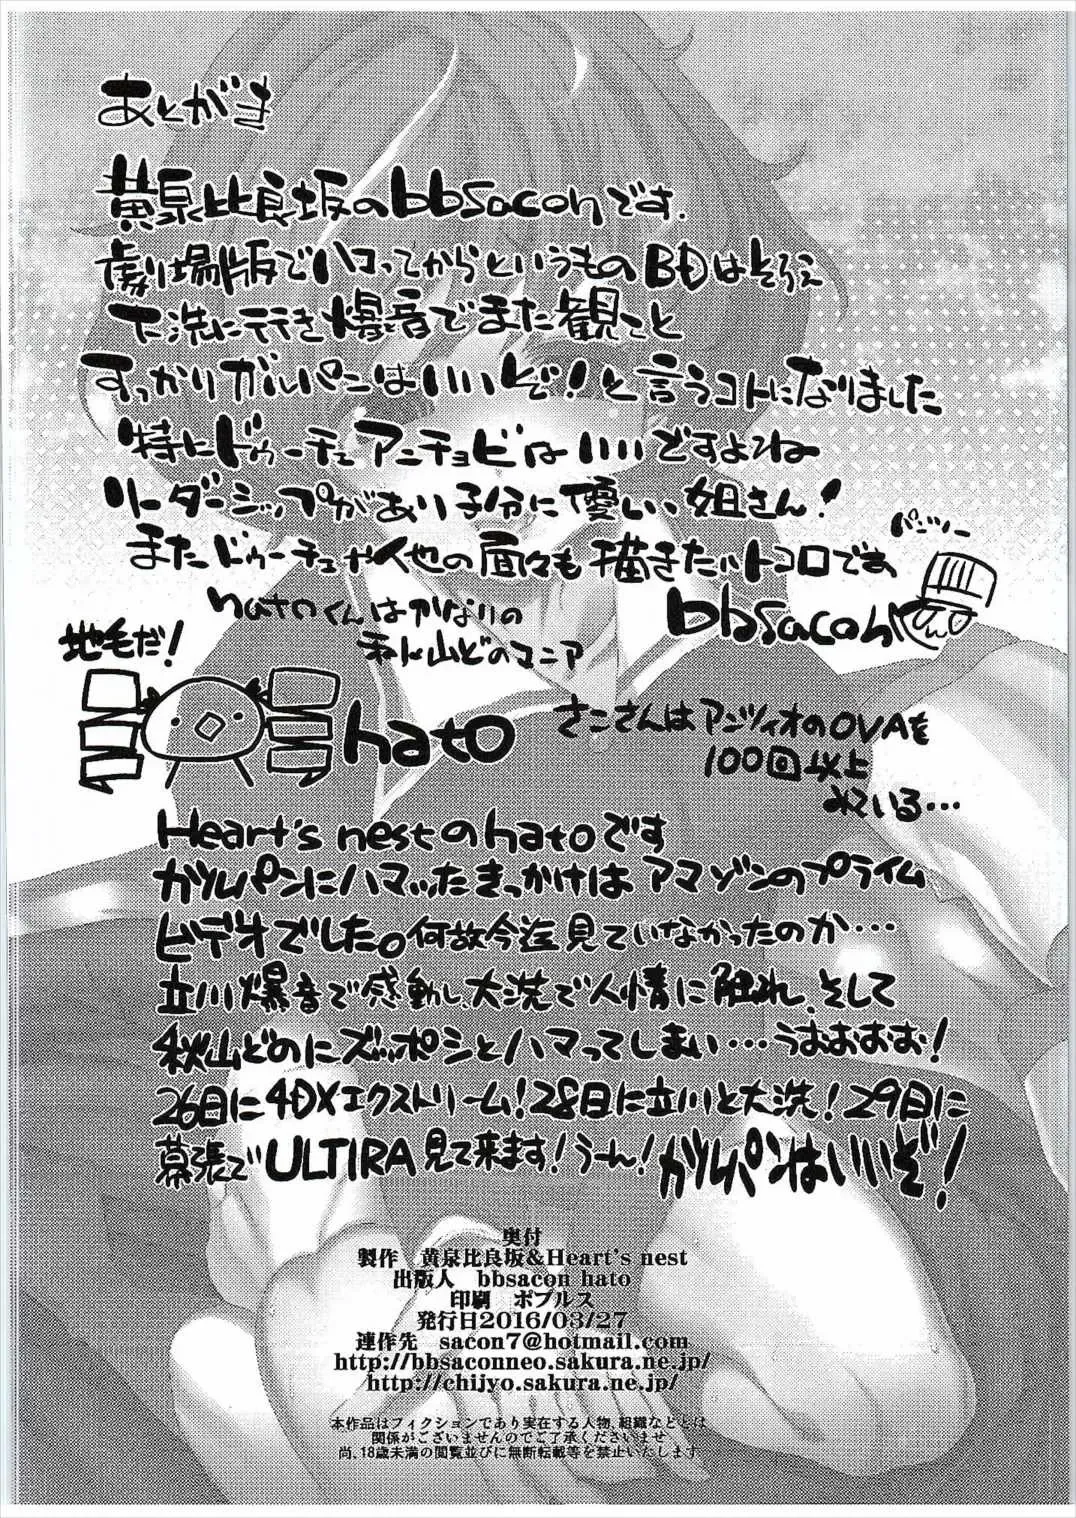 あとがき
黄泉比良坂のbbsaconです.
劇場版でハコってからというものBDはそろえ
大洗に行き爆音でまた観こと
すっかりガルパンはいいぞ！と言うコトになりました
特にドゥーチェアンチョビはいいですよね
リーダーシップがあり子分に優しい、姐さん！
またドゥーチェや他の面々も描きたいトコロです
パンツァー
bbsacon
hatoくんはかなりの
秋山どのマニア
地毛だ！
hato
さこさんはアンツィオのOVAを
100回以上
みている…
Heart's nestのhatoです
ガルパンにハマッたきっかけはアマゾンのプライム
ビデオでした。何故今迄見ていなかったのか…
立川爆音で感動し、大洗で人情に触れ、そして
秋山どのにズッポシとハマってしまい…うおおおお！
26日に4DXエクストリーム！28日に立川と大洗！29日に
幕張でULTIRA見て来ます！うーん！ガルパンはいいぞ！
奥付
製作　黄泉比良坂&Heart's nest
出版人　bbsacon hato
印刷　ポプルス
発行日2016/03/27
連作先　sacon7@hotmail.com
http://bbsaconneo.sakura.ne.jp/
http://chijyo.sakura.ne.jp/
本作品はフィクションであり実在する人物、組織などとは
関係がございませんのでご了承くださいませ
尚、18歳未満の閲覧並びに無断転載等を禁止いたします